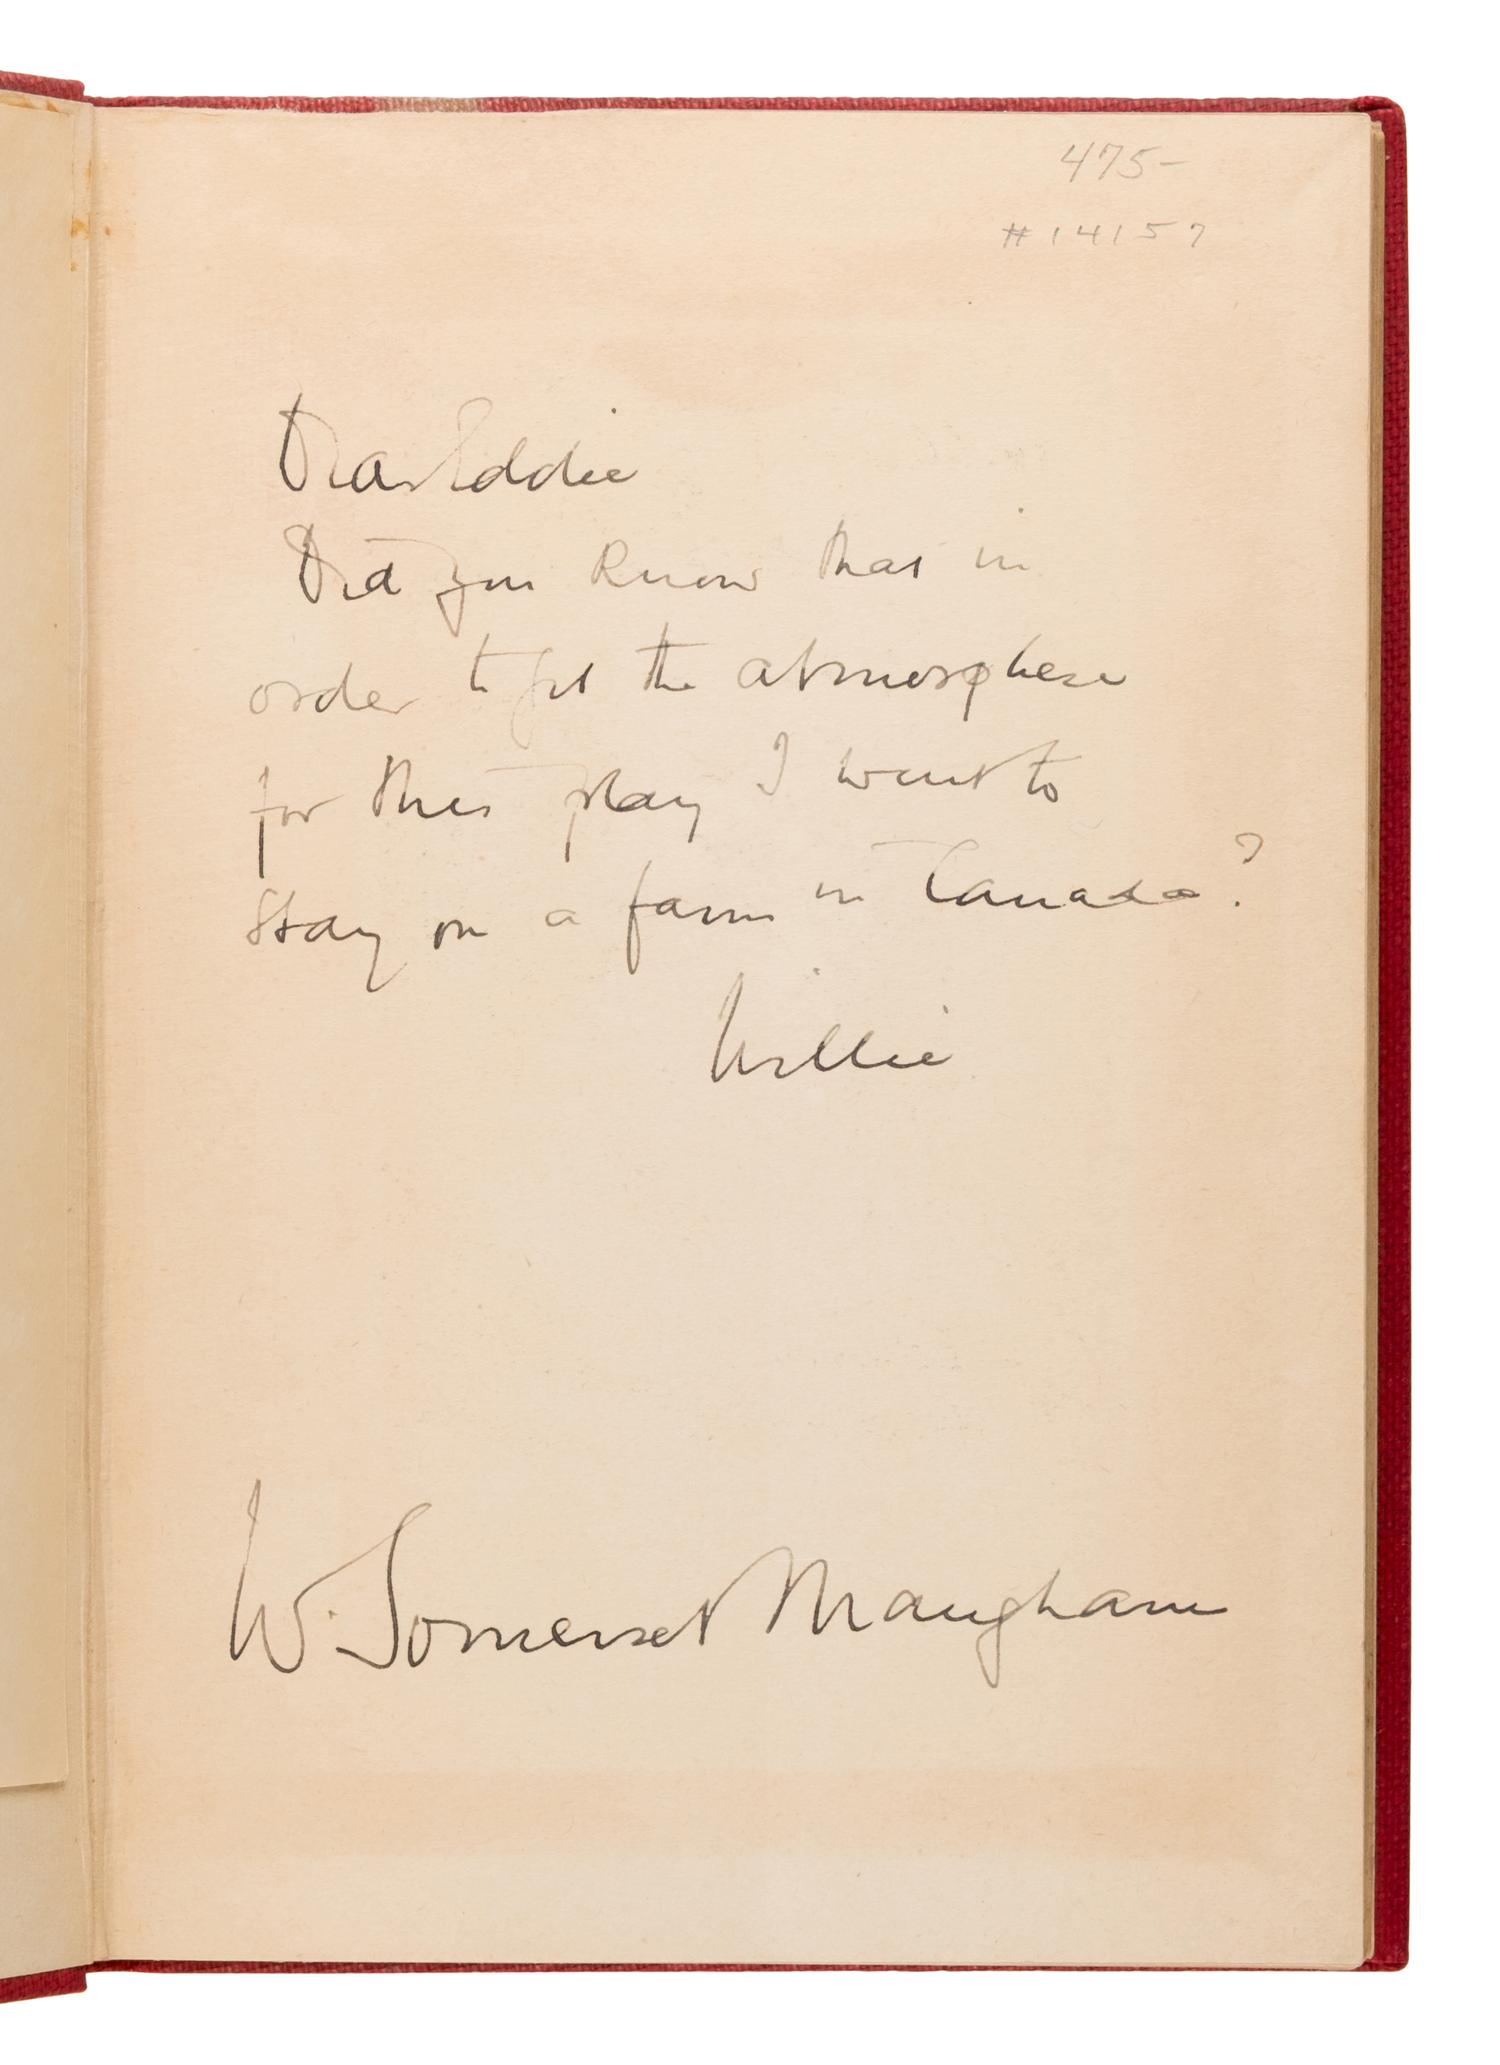 475-
#14157
Dear Eddie
Did you know that in
order to get the atmosphere
for this play I went to
stay on a farm in Canada?
Willie
W. Somerset Maugham